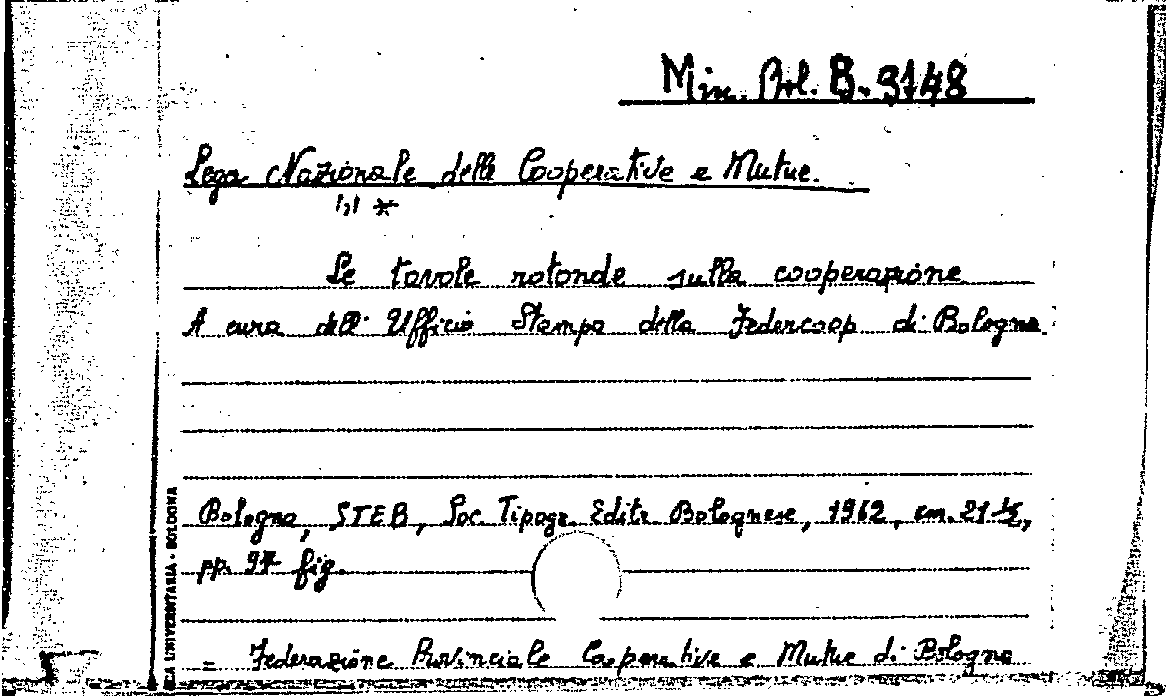 Min. Bol. B. 3148
Lega Nazionale delle Cooperative e Mutue.
Le tavole rotonde sulla cooperazione
A cura dell' Ufficio Stampa della Federcoop di Bologna.
Bologna, STEB, Soc. Tipogr. Editr. Bolognese, 1962, cm. 21 ½,
pp. 97 fig.
= Federazione Provinciale Cooperative e Mutue di Bologna
UNIVERSITARIA - BOLOGNA